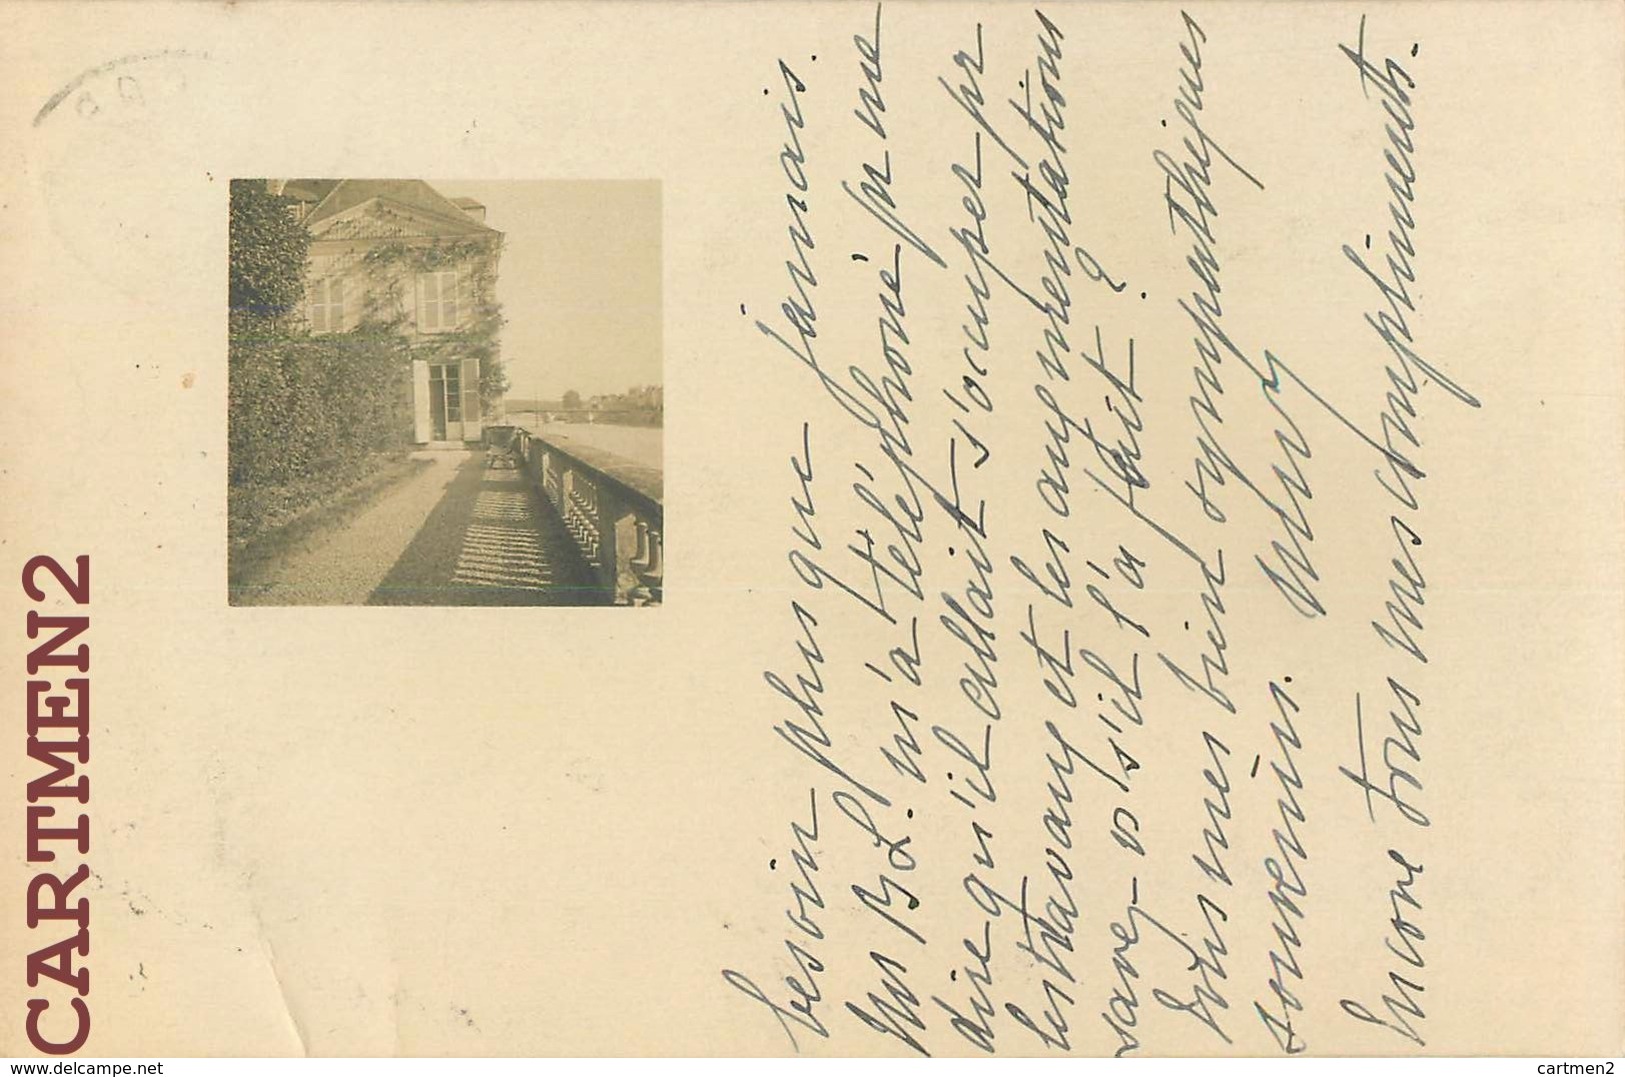 besoin plus que jamais.
Mr B L. m'a téléphoné pr me
dire qu'il allait s'occuper pr
les travaux et les augmentations
savez-vs s'il l'a fait ?
Tous mes bien sympathiques
souvenirs.
Encore tous mes compliments.
CARTMEN2
www.delcampe.net
cartmen2